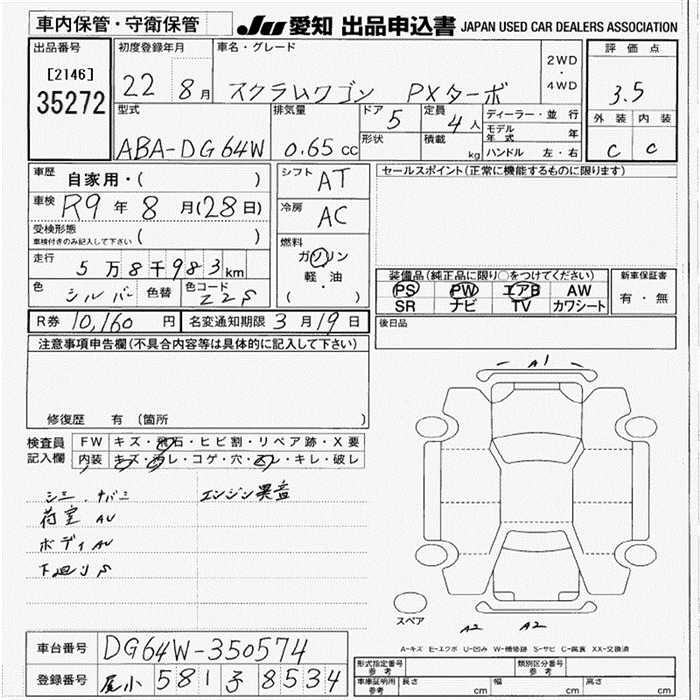 車内保管・守衛保管
JU 愛知 出品申込書 JAPAN USED CAR DEALERS ASSOCIATION
出品番号
[2146]
35272
初度登録年月
22 8月
車名・グレード
スクラムワゴン PXターボ
2WD
・
4WD
評価点
3.5
外装 内装
C C
型式
ABA-DG64W
排気量
0.65 cc
ドア 5
形状
定員 4人
積載 kg
ディーラー・並行
モデル年式 年
ハンドル 左・右
車歴 自家用・( )
車検 R9年8月(28日)
受検形態
車検付きのみ記入して下さい ( )
走行 5万8千983km
色 シルバー 色替 色コード Z2S
R券 10,160円 名変通知期限 3月19日
シフト AT
冷房 AC
燃料
ガソリン
軽・油
( ・ )
セールスポイント(正常に機能するものに限ります)
装備品(純正品に限り○をつけてください)
PS PW エアB AW
SR ナビ TV カワシート
新車保証書
有・無
後日品
注意事項申告欄(不具合内容等は具体的に記入して下さい)
修復歴 有 (箇所 )
検査員記入欄
FW キズ・飛石・ヒビ割・リペア跡・X要
内装 キズ・汚レ・コゲ・穴・スレ・キレ・破レ
エンジン異音
荷室 AU
ボディ AU
下廻り S
A1
スペア
A2 A2
A-キズ E-エクボ U-凹み W-補修跡 S-サビ C-腐食 XX-交換済
車台番号 DG64W-350574
登録番号 尾小 581 8534
形式指定番号 参考
類別区分番号 参考
車庫証明用 参考 長さ cm 幅 cm 高さ cm